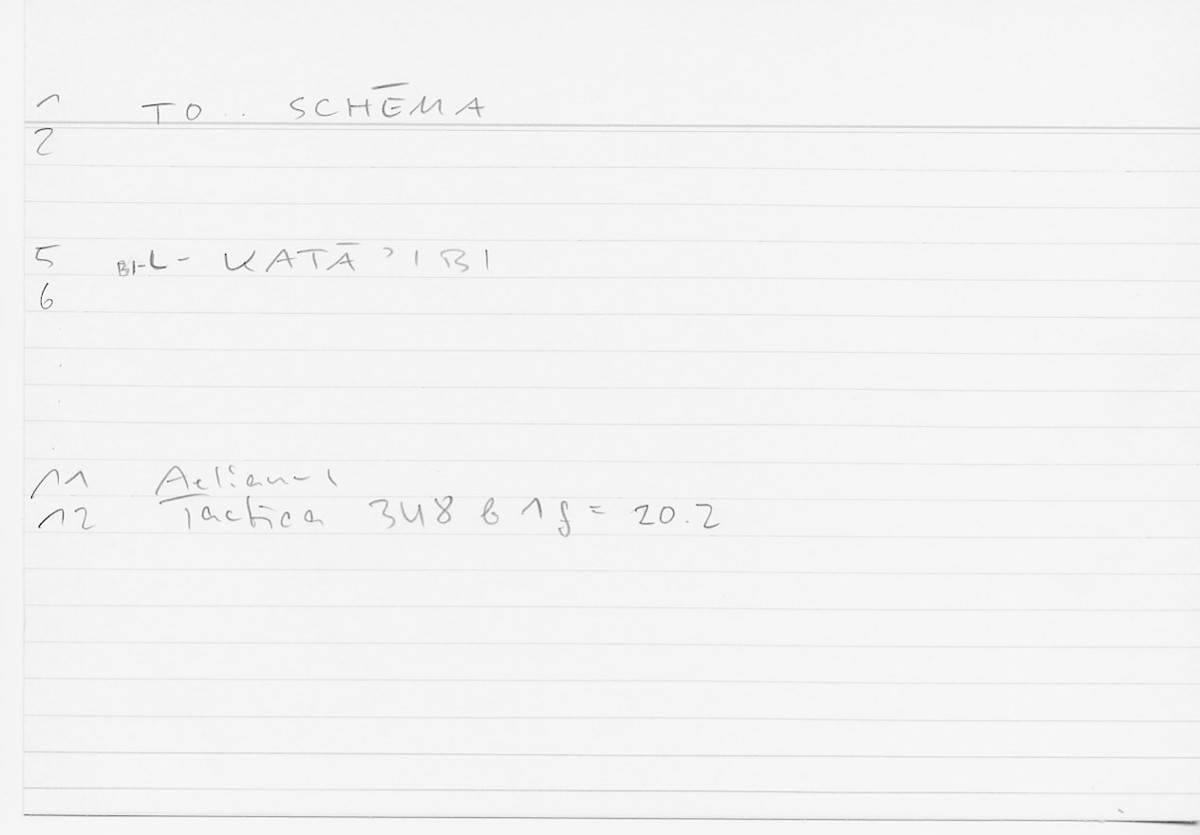 1 TO .. SCHĒMA
2
5 BI-L- KATĀ ' I BI
6
11 Aelian-
12 Tactica 348 b 1 f = 20.2